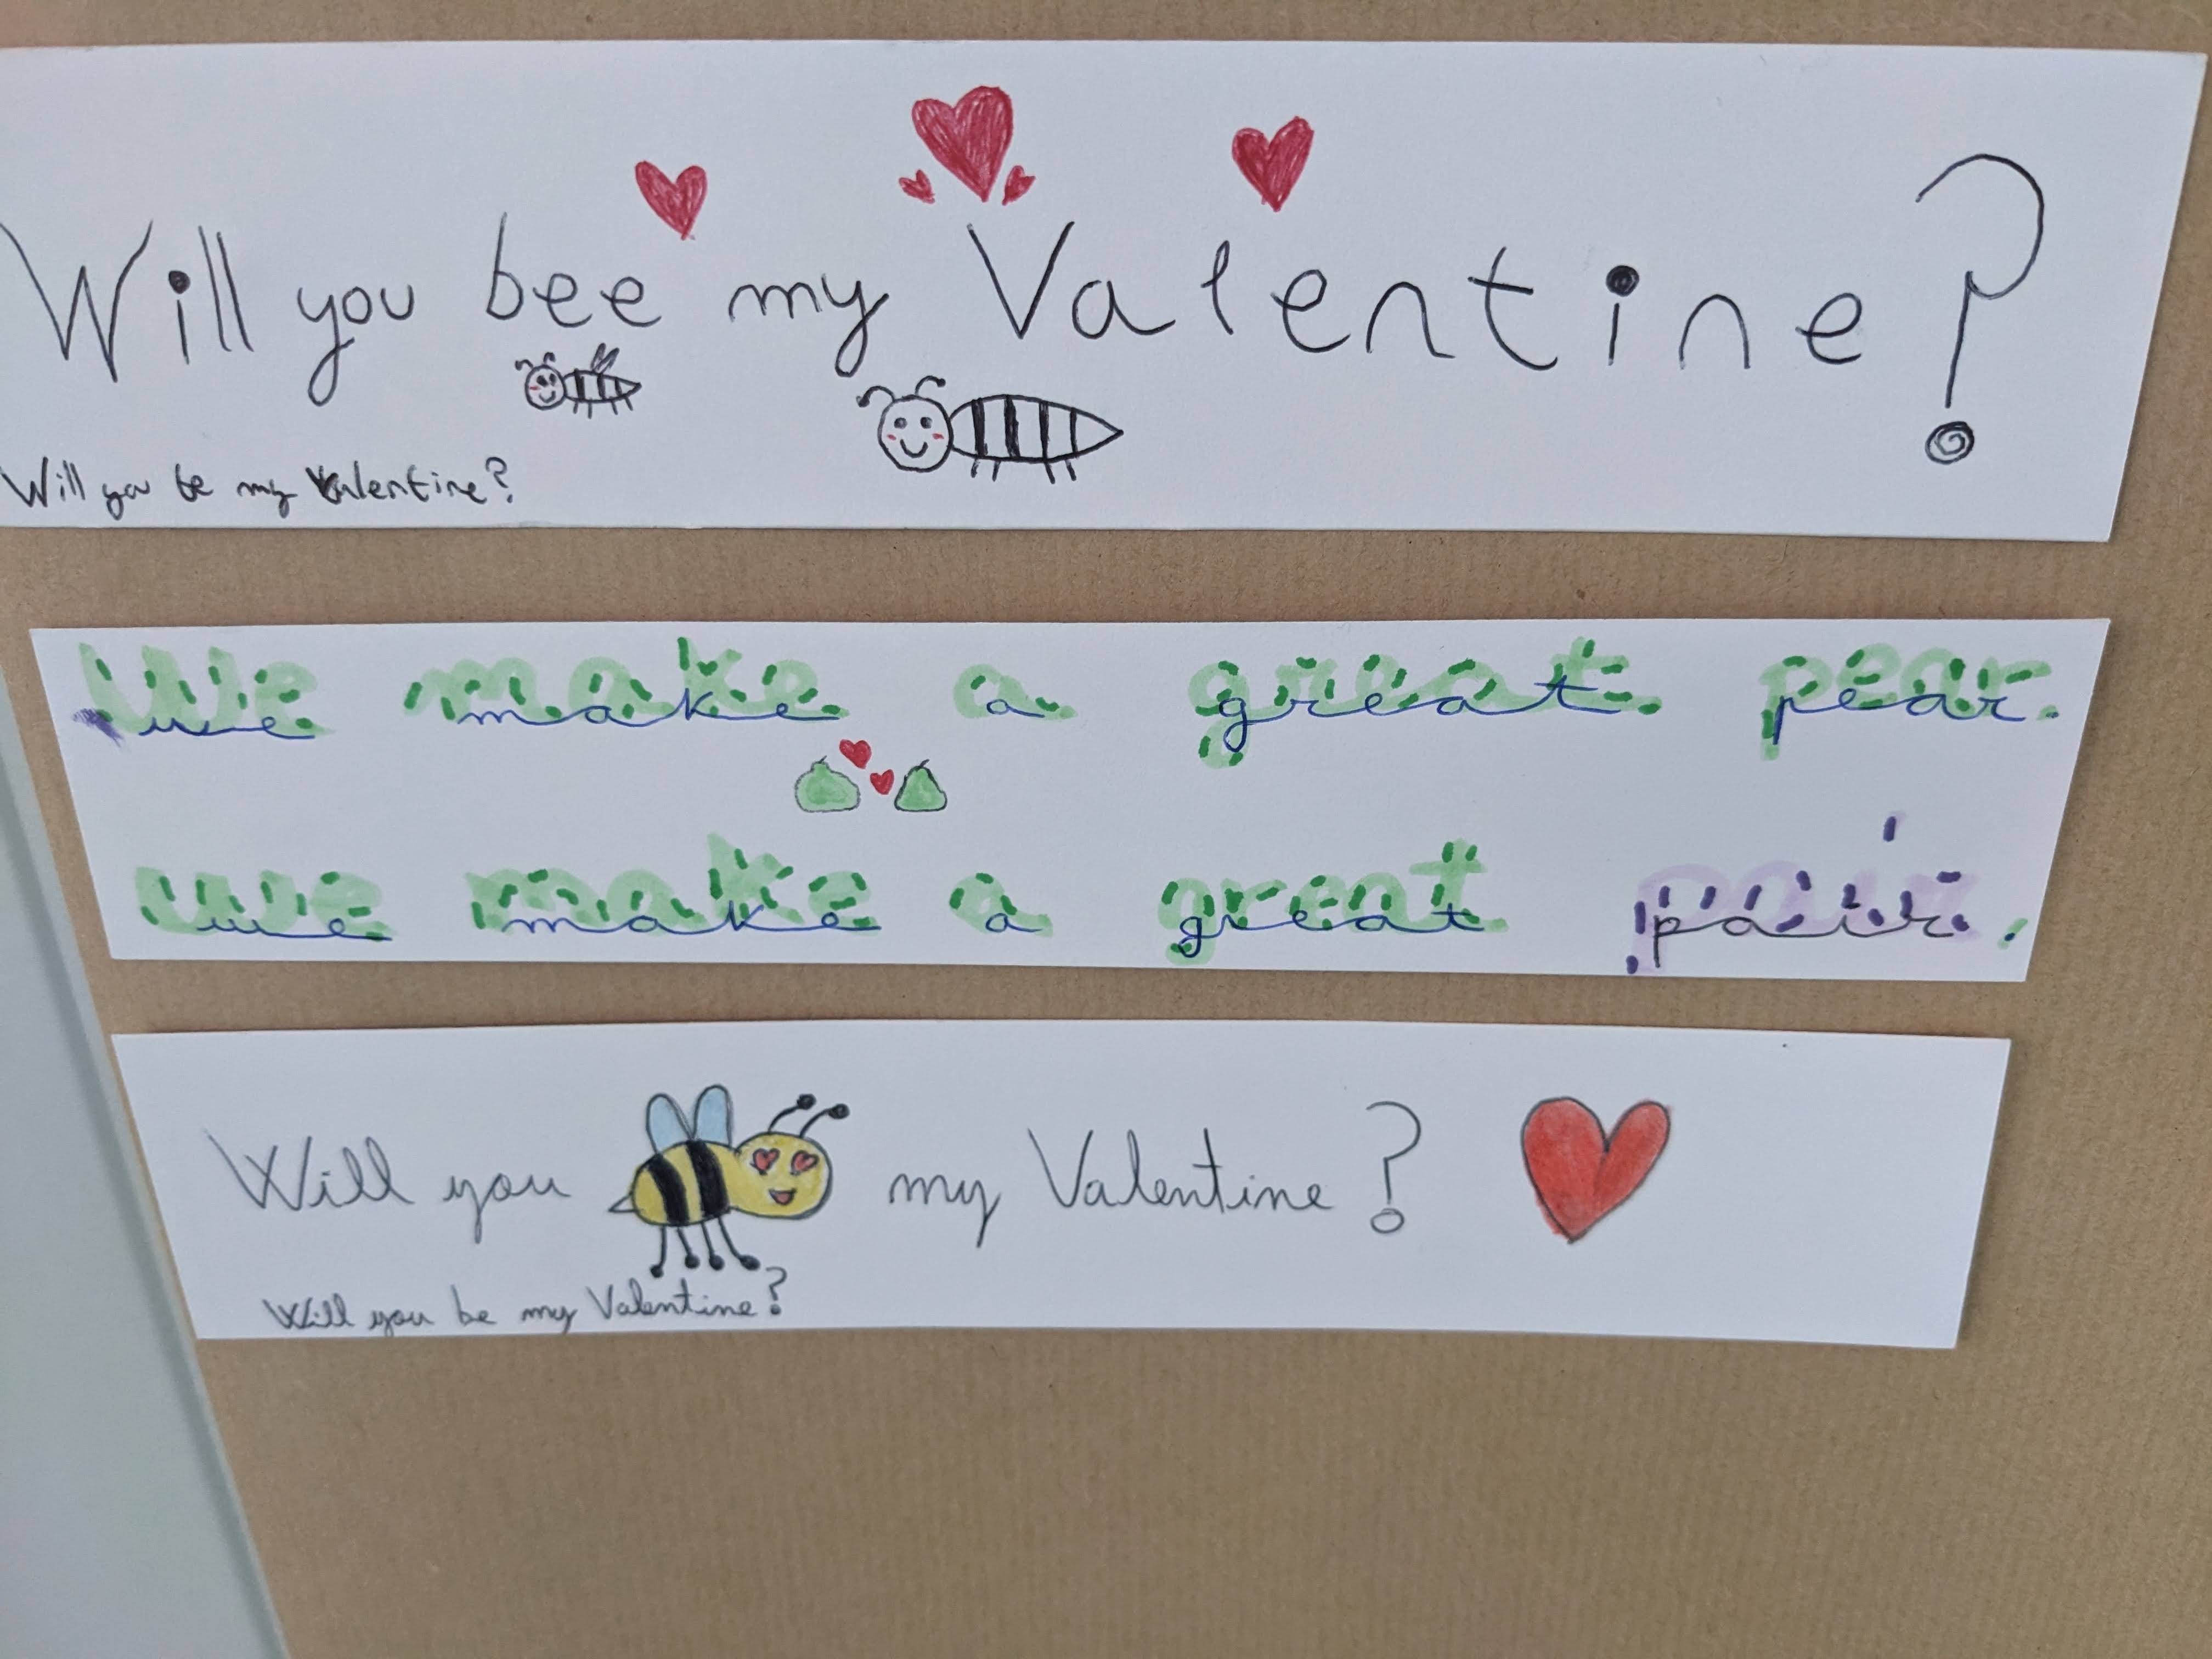 Will you bee my Valentine?
Will you be my Valentine?
We make a great pear.
we make a great pair.
Will you my Valentine?
Will you be my Valentine?